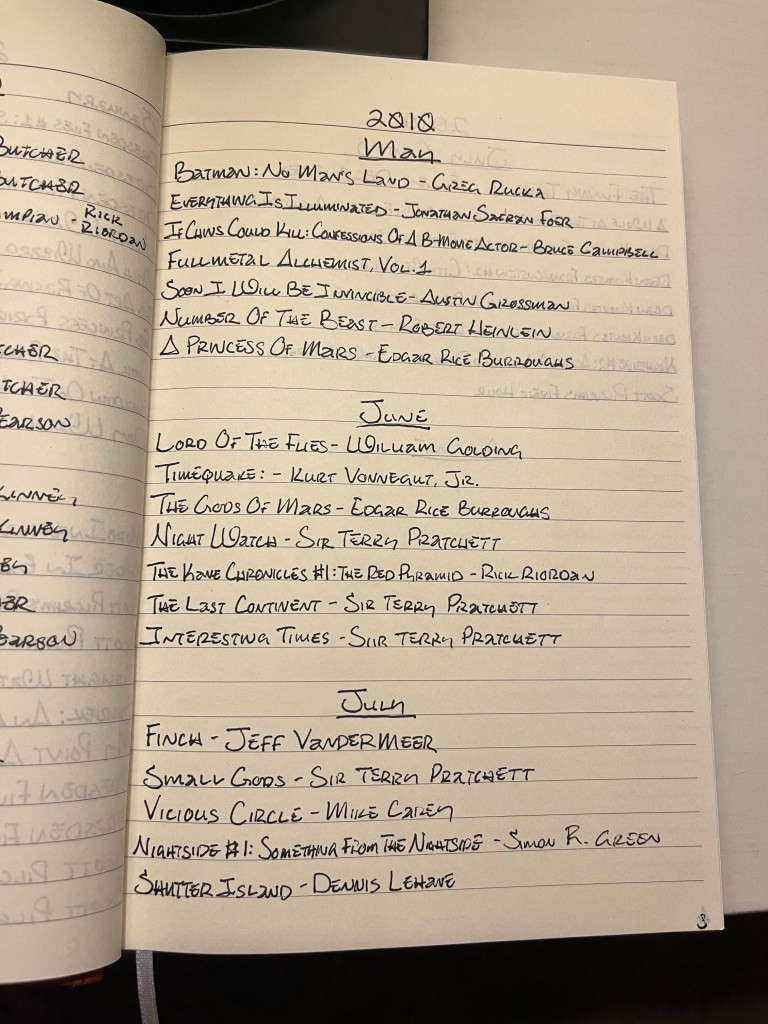 BUTCHER
BUTCHER
RICK
MPIAN - RIORDAN
TCHER
TCHER
EARSON
KINNEY
KINNEY
EARSON
2010
May
Batman: No Man's Land - Greg Rucka
Everything Is Illuminated - Jonathan Safran Foer
If Chins Could Kill: Confessions Of A B-Movie Actor - Bruce Campbell
Fullmetal Alchemist, Vol. 1
Soon I Will Be Invincible - Austin Grossman
Number Of The Beast - Robert Heinlein
A Princess Of Mars - Edgar Rice Burroughs
June
Lord Of The Flies - William Golding
Timequake: - Kurt Vonnegut, Jr.
The Gods Of Mars - Edgar Rice Burroughs
Night Watch - Sir Terry Pratchett
The Kane Chronicles #1: The Red Pyramid - Rick Riordan
The Last Continent - Sir Terry Pratchett
Interesting Times - Sir Terry Pratchett
July
Finch - Jeff VanderMeer
Small Gods - Sir Terry Pratchett
Vicious Circle - Mike Carey
Nightside #1: Something From The Nightside - Simon R. Green
Shutter Island - Dennis Lehane
3